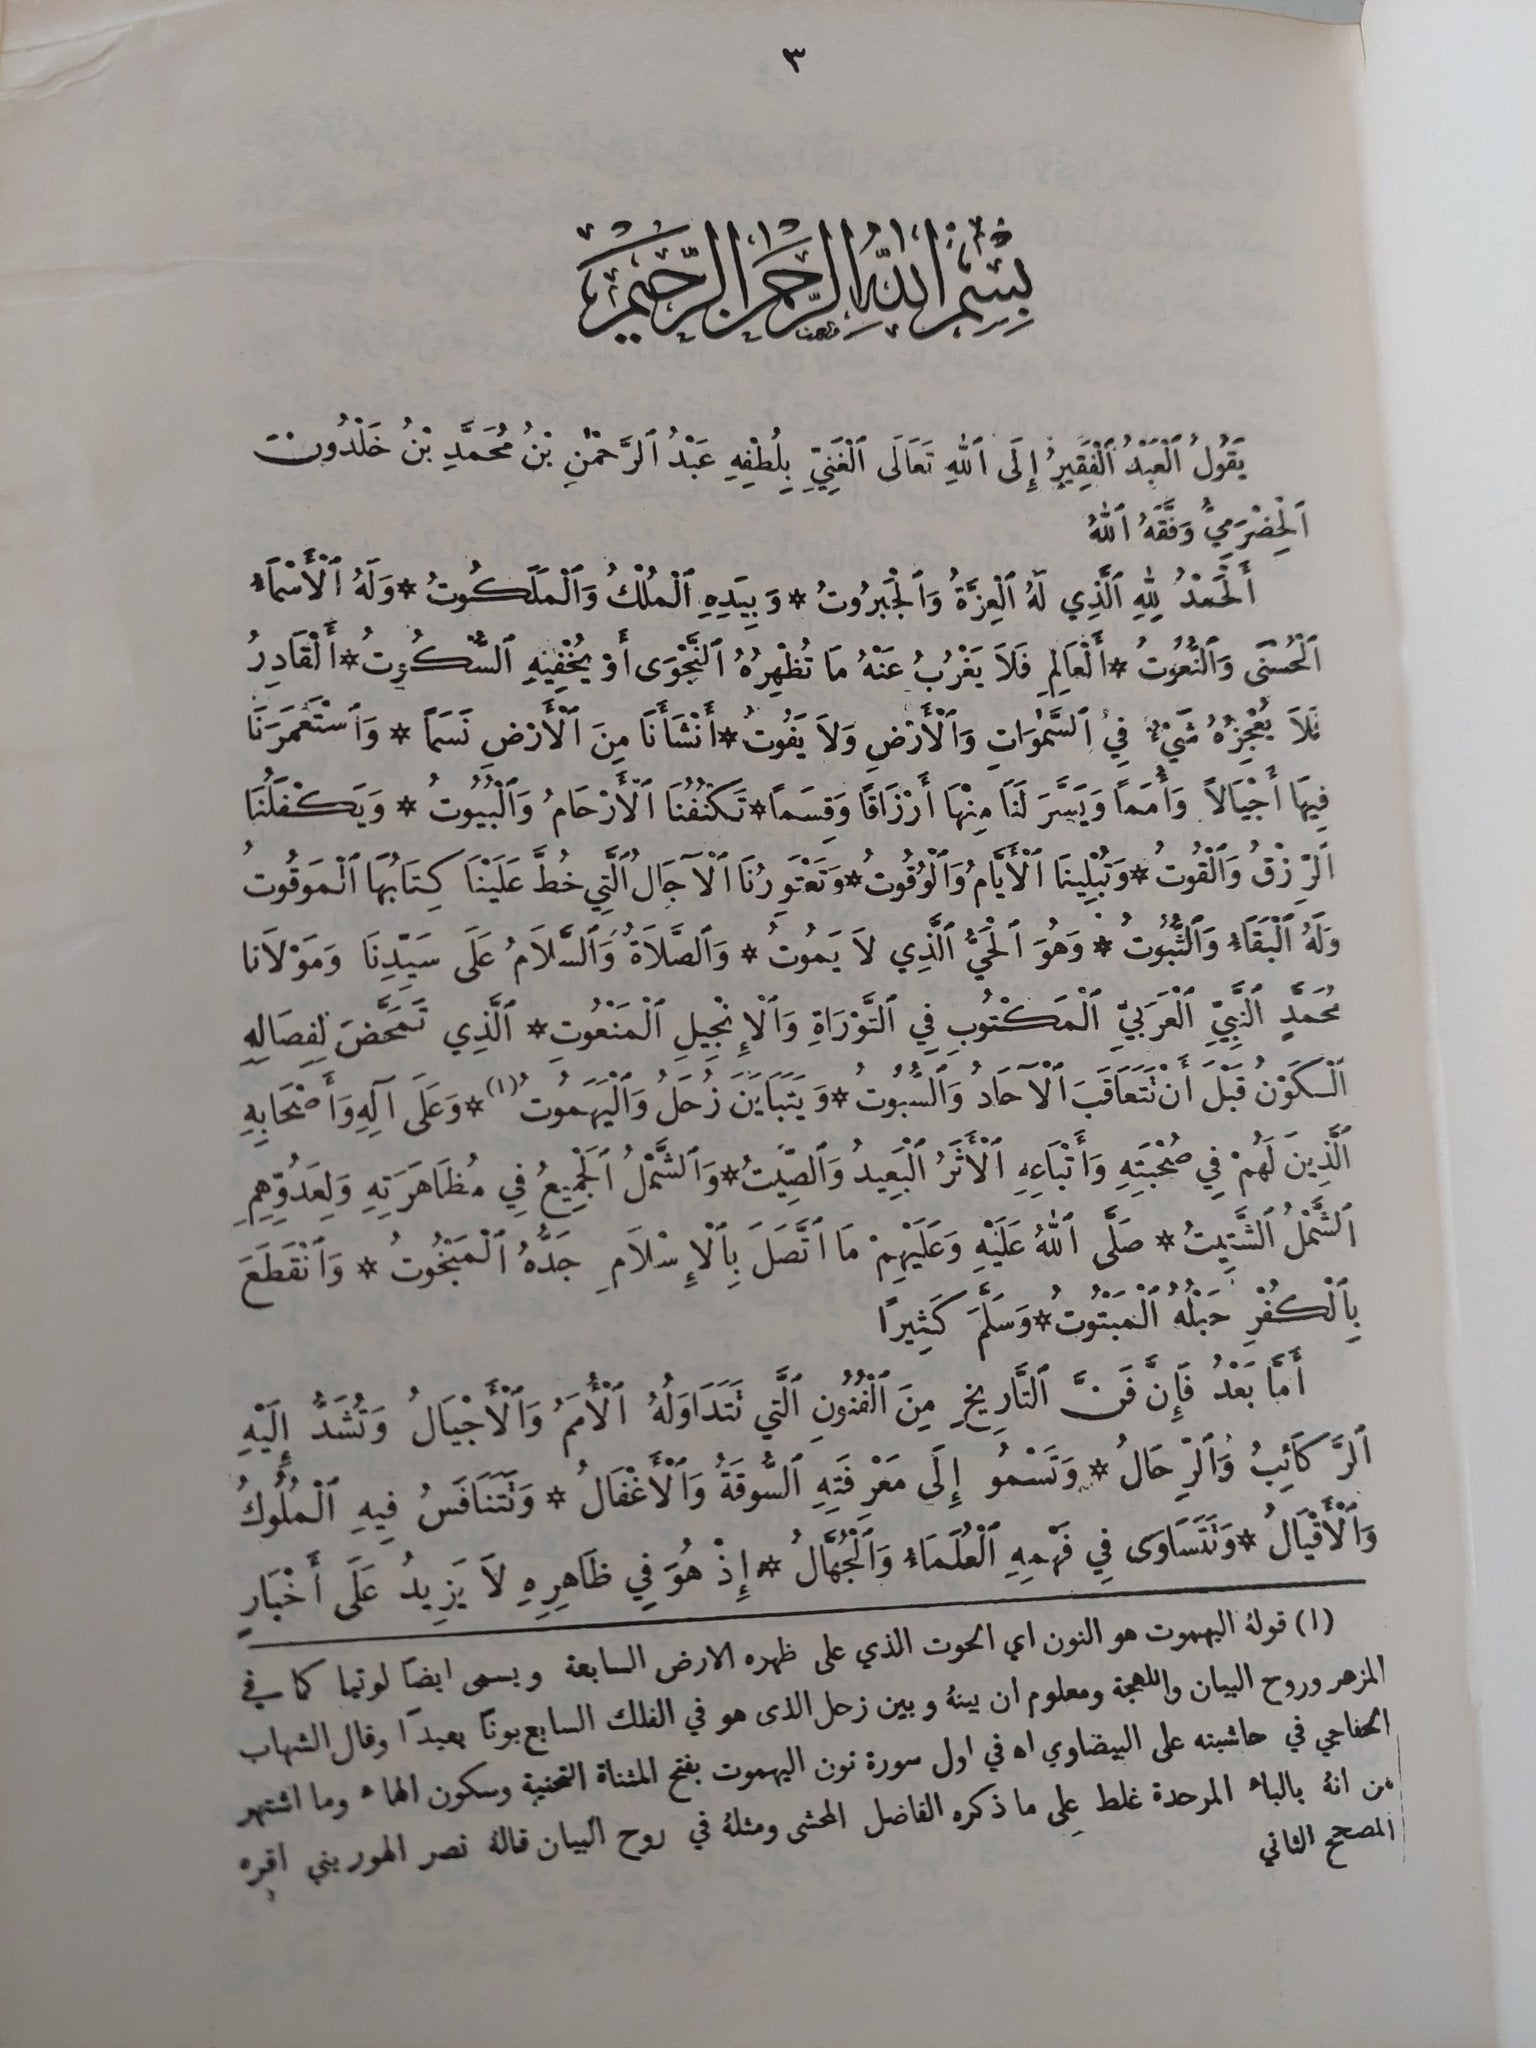 ٣
بِسْمِ اللهِ الرَّحْمٰنِ الرَّحِيمِ
يَقُولُ ٱلْعَبْدُ ٱلْفَقِيرُ إِلَى ٱللهِ تَعَالَى ٱلْغَنِيِّ بِلُطْفِهِ عَبْدُ ٱلرَّحْمٰنِ بْنُ مُحَمَّدِ بْنُ خَلْدُونَ
ٱلْحِضْرَمِيُّ وَفَّقَهُ ٱللهُ
أَلْحَمْدُ لِلّٰهِ ٱلَّذِي لَهُ ٱلْعِزَّةُ وَٱلْجَبَرُوتُ * وَبِيَدِهِ ٱلْمُلْكُ وَٱلْمَلَكُوتُ * وَلَهُ ٱلْأَسْمَاءُ
ٱلْحُسْنَى وَٱلنُّعُوتُ * أَلْعَالِمِ فَلاَ يَغْرُبُ عَنْهُ مَا تُظْهِرُهُ ٱلنَّجْوَى أَوْ يُخْفِيهِ ٱلسُّكُوتُ * أَلْقَادِرُ
فَلاَ يُعْجِزُهُ شَيْءٌ فِي ٱلسَّمٰوَاتِ وَٱلْأَرْضِ وَلاَ يَفُوتُ * أَنْشَأَنَا مِنَ ٱلْأَرْضِ نَسَمًا * وَٱسْتَعْمَرَنَا
فِيهَا أَجْيَالاً وَأُمَمًا وَيَسَّرَ لَنَا مِنْهَا أَرْزَاقًا وَقِسَمًا * تَكْنُفُنَا ٱلْأَرْحَامُ وَٱلْبُيُوتُ * وَيَكْفَلُنَا
ٱلرِّزْقُ وَٱلْقُوتُ * وَتُبْلِينَا ٱلْأَيَّامُ وَٱلْوُقُوتُ * وَتَعْتَوِرُنَا ٱلْآجَالُ ٱلَّتِي خُطَّ عَلَيْنَا كِتَابُهَا ٱلْمَوْقُوتُ
وَلَهُ ٱلْبَقَاءُ وَٱلثُّبُوتُ * وَهُوَ ٱلْحَيُّ ٱلَّذِي لاَ يَمُوتُ * وَٱلصَّلاَةُ وَٱلسَّلاَمُ عَلَى سَيِّدِنَا وَمَوْلاَنَا
مُحَمَّدٍ ٱلنَّبِيِّ ٱلْعَرَبِيِّ ٱلْمَكْتُوبِ فِي ٱلتَّوْرَاةِ وَٱلْإِنْجِيلِ ٱلْمَنْعُوتِ * ٱلَّذِي تَمَحَّضَ لِفِصَالِهِ
ٱلْكَوْنُ قَبْلَ أَنْ تَتَعَاقَبَ ٱلْآحَادُ وَٱلسُّبُوتُ * وَيَتَبَايَنَ زُحَلُ وَٱلْيَهَمُوتُ (١) * وَعَلَى آلِهِ وَأَصْحَابِهِ
ٱلَّذِينَ لَهُمْ فِي صُحْبَتِهِ وَأَتْبَاعِهِ ٱلْأَثَرُ ٱلْبَعِيدُ وَٱلصِّيتُ * وَٱلشَّمْلُ ٱلْجَمِيعُ فِي مُظَاهَرَتِهِ وَلِعَدُوِّهِمِ
ٱلشَّمْلُ ٱلشَّتِيتُ * صَلَّى ٱللهُ عَلَيْهِ وَعَلَيْهِمْ مَا ٱتَّصَلَ بِٱلْإِسْلاَمِ جَدُّهُ ٱلْمَبْخُوتُ * وَٱنْقَطَعَ
بِٱلْكُفْرِ حَبْلُهُ ٱلْمَبْتُوتُ * وَسَلَّمَ كَثِيرًا
أَمَّا بَعْدُ فَإِنَّ فَنَّ ٱلتَّارِيخِ مِنَ ٱلْفُنُونِ ٱلَّتِي تَتَدَاوَلُهُ ٱلْأُمَمُ وَٱلْأَجْيَالُ وَتُشَدُّ إِلَيْهِ
ٱلرَّكَائِبُ وَٱلرِّحَالُ * وَتَسْمُو إِلَى مَعْرِفَتِهِ ٱلسُّوقَةُ وَٱلْأَغْفَالُ * وَتَتَنَافَسُ فِيهِ ٱلْمُلُوكُ
وَٱلْأَقْيَالُ * وَتَتَسَاوَى فِي فَهْمِهِ ٱلْعُلَمَاءُ وَٱلْجُهَّالُ * إِذْ هُوَ فِي ظَاهِرِهِ لاَ يَزِيدُ عَلَى أَخْبَارٍ
(١) قولهُ اليهموت هو النون اي الحوت الذي على ظهره الارض السابعة ويسمى ايضاً لوتيا كما في
المزهر وروح البيان واللهجة ومعلوم ان بينهُ وبين زحل الذى هو في الفلك السابع بوناً بعيدًا وقال الشهاب
الخفاجي في حاشيته على البيضاوي اه في اول سورة نون اليهموت بفتح المثناة التحتية وسكون الهاء وما اشتهر
من انهُ بالباء الموحدة غلط على ما ذكره الفاضل المحشى ومثلهُ في روح البيان قالهُ نصر الهوريني اقره
المصحح الثاني